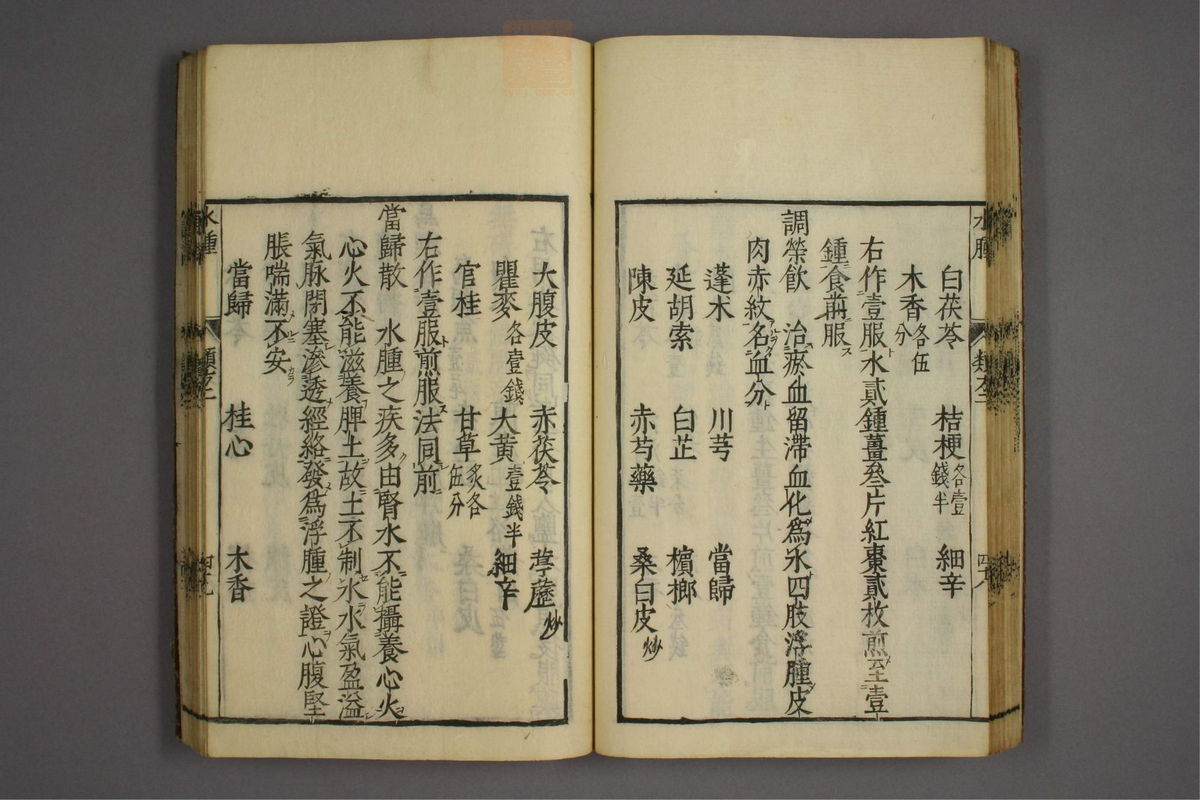 水腫
白茯苓 桔梗各壹錢半 細辛
木香各伍分
右作壹服水貳鍾薑叁片紅棗貳枚煎至壹
鍾食前服ス
調榮飲 治瘀血留滯血化爲水四肢浮腫皮
肉赤紋名血分
蓬朮 川芎 當歸
延胡索 白芷 檳榔
陳皮 赤芍藥 桑白皮炒
大腹皮 赤茯苓 葶藶炒
瞿麥各壹錢 大黃壹錢半 細辛
官桂 甘草炙各伍分
右作壹服煎服法同前
當歸散 水腫之疾多由腎水不能攝養心火
心火不能滋養脾土故土不制水水氣盈溢
氣脉閉塞滲透經絡發爲浮腫之證心腹堅
脹喘滿不安
當歸 桂心 木香
水腫